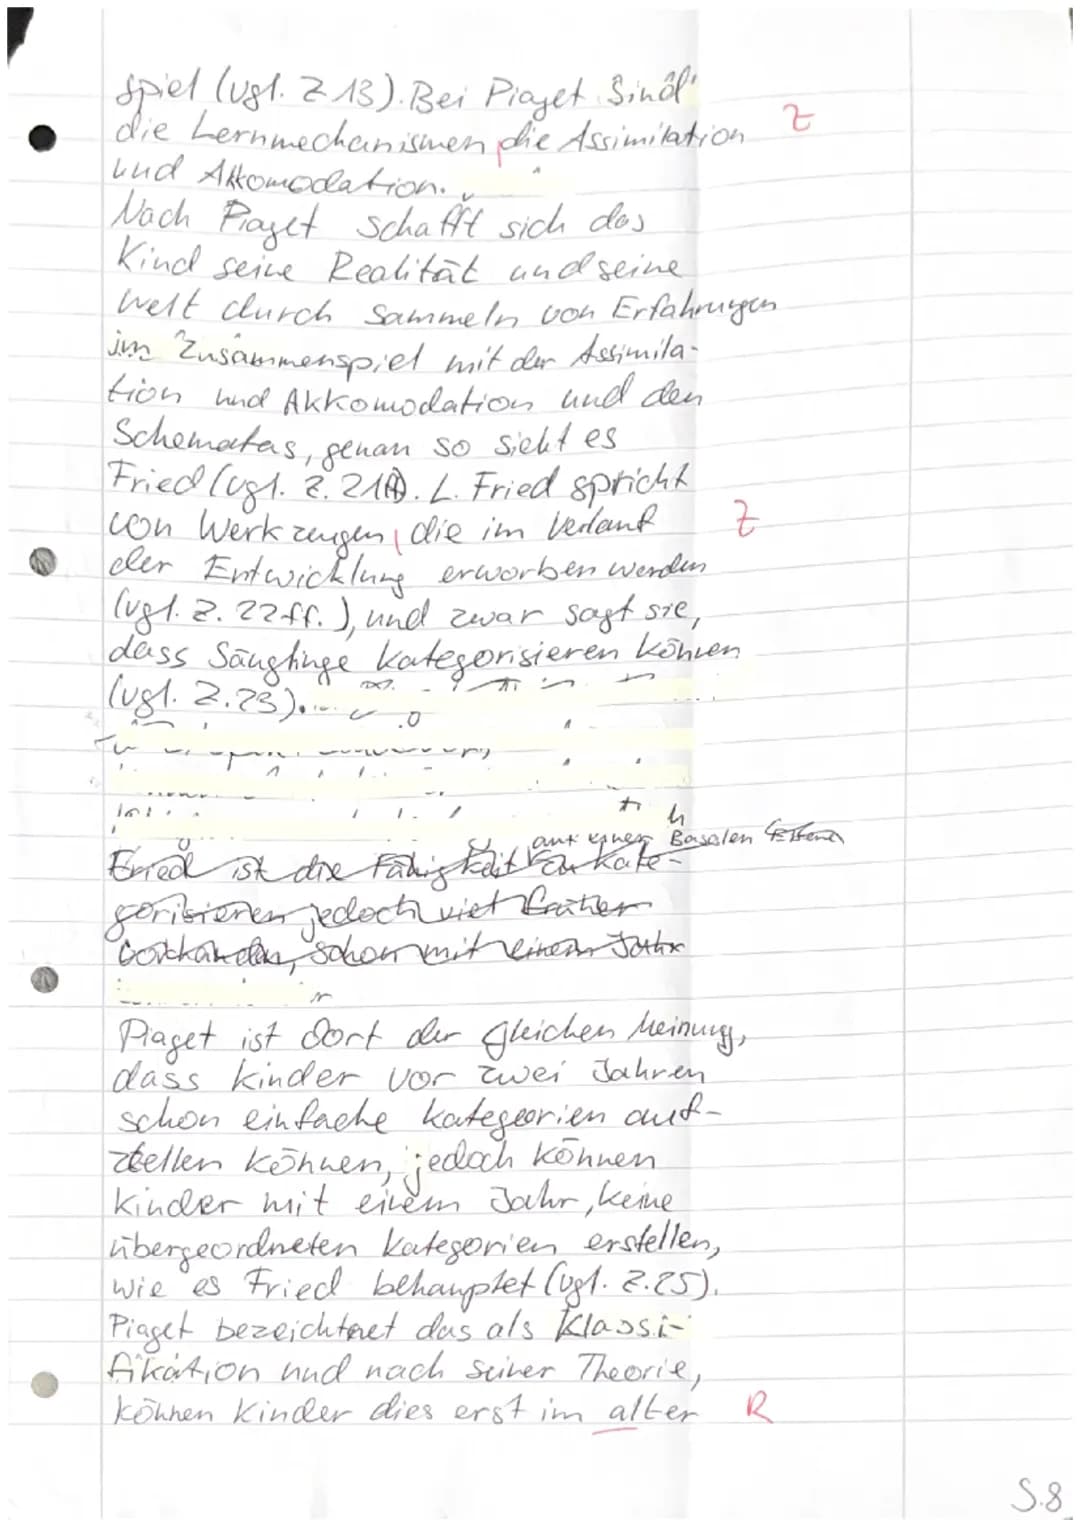 spiel (vgl. Z 13). Bei Piaget sind
die Lernmechanismen, die Assimilation Z
und Akkomodation.
Nach Piaget schafft sich das
Kind seine Realität und seine
Welt durch sammeln von Erfahrungen
im Zusammenspiel mit der Assimila-
tion und Akkomodation und den
Schematas, genau so sieht es
Fried (vgl. Z. 21). L. Fried spricht
von Werkzeugen, die im Verlauf Z
der Entwicklung erworben werden
(vgl. Z. 22ff.), und zwar sagt sie,
dass Säuglinge kategorisieren können
(vgl. Z. 23).
auf einer Basalen Ebene
Fried ist die Fähigkeit zu kate-
gorisieren jedoch viel früher
vorhanden, schon mit einem Jahr
Piaget ist dort der gleichen Meinung,
dass Kinder vor zwei Jahren
schon einfache Kategeorien auf-
stellen können, jedoch können
Kinder mit einem Jahr, keine
übergeordneten Kategorien erstellen,
wie es Fried behauptet (vgl. Z. 25).
Piaget bezeichnet das als Klassi-
fikation und nach seiner Theorie,
können Kinder dies erst im alter R
S. 8